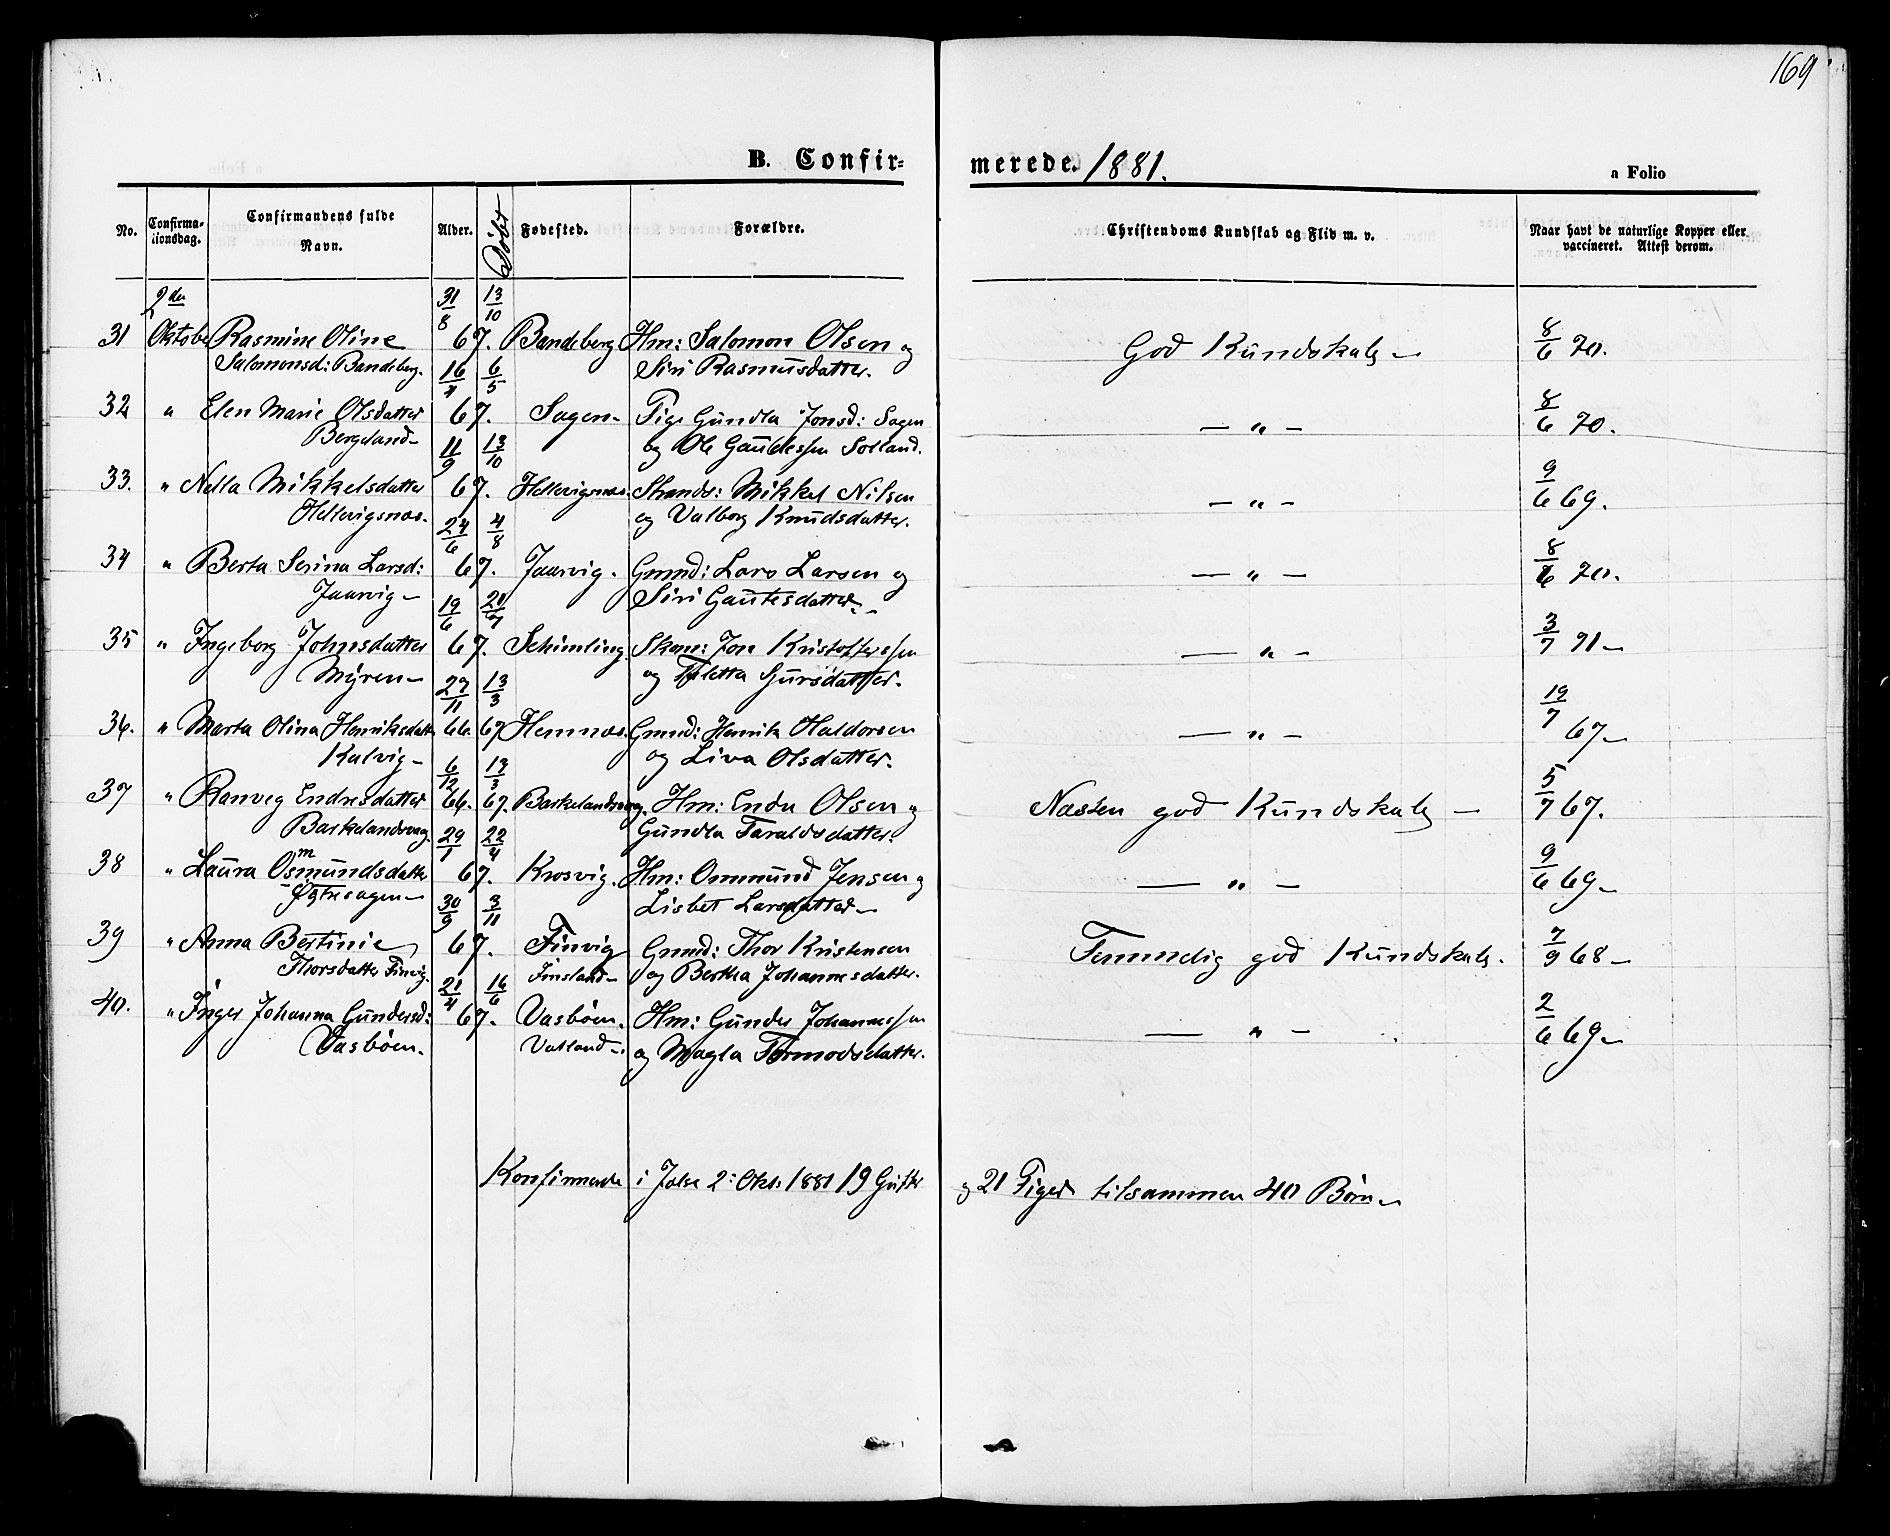 169
B. Confir-
merede. 1881.
a Folio
No. Confirma-tionsdag. Confirmandens fulde Navn. Alder. Døbt Fødested. Forældre. Christendoms Kundskab og Flid m. v. Naar havt de naturlige Kopper eller vaccineret. Attest derom.
2den 31/8 13/10
31 Oktober Rasmine Oline 67. Bandeberg Hm: Salomon Olsen og God Kundskab – 8/6 70.
Salomonsd: Bandeberg. 16/4 6/5 Siri Rasmusdatter.
32 " Elen Marie Olsdatter 67. Sagen – Pige Gundla Jonsd: Sagen – " – 8/6 70.
Bergeland – 11/9 13/10 og Ole Gaudessen Solland.
33. " Nella Mikkelsdatter 67. Hellevigsnæs. Strands: Mikkel Nilsen – " – 9/6 69.
Hellevigsnæs. 24/6 4/8 og Valborg Knudsdatter.
34 " Berta Serina Larsd: 67. Jaarvig. Grmd: Lars Larsen og – " – 8/6 70.
Jaarvig – 19/6 21/7 Siri Gautesdatter. –
35 " Ingeborg Johnsdatter 67. Schimling. Skom: Jon Kristoffersen – " – 3/7 71 –
Myren – 27/11 13/3 og Tiletta Sjursdatter.
36. " Marta Olina Henriksdatt 66. 67 Hemnæs. Grmd: Henrik Haldorsen – " – 19/7 67 –
Kalvig – 6/12 13/3 og Liva Olsdatter.
37 " Ranveig Endresdatter 66. 67. Barkelandsvog Hm: Endre Olsen og Næsten god Kundskab – 5/7 67.
Barkelandsvog. 29/1 22/4 Gundla Taraldsdatter.
38 " Laura Osmundsdatter 67. Krosvig. Hm: Ommund Jensen og – " – 9/6 69 –
Østresagen – 30/9 3/11 Lisbet Larsdatter –
39 " Anna Bertinie 67. Finvig Grmd: Thor Kristensen Temmelig god Kundskab. 7/9 68 –
Thorsdatter Finvig. 21/4 16/6 Finsland – og Bertha Johannesdatter.
40. " Inger Johanna Gundersd: 67. Vasbøen. Hm: Gunder Johannessen – " – 2/6 69 –
Vasbøen. Vatland –. og Magla Tormodsdatter.
Konfirmerede i Jølse 2: Okt: 1881 19 Gutter og 21 Piger tilsammen 40 Børn –